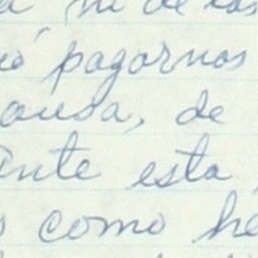 ni de los
pagarnos
causa, de
ante esta
como he